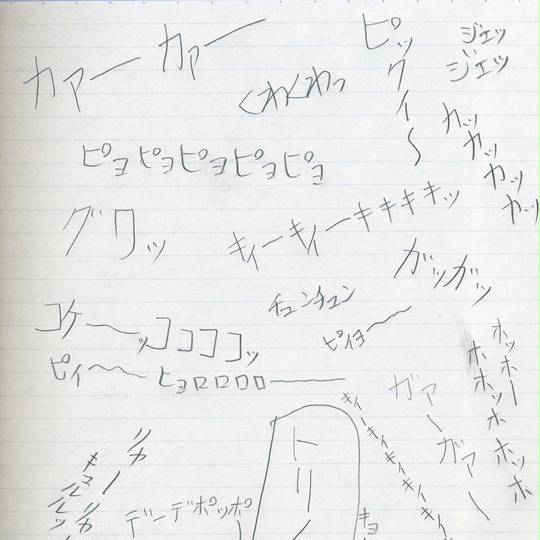 カァー カァー
くわくわっ
ピックイ〜
ジェッ
ジェッ
カッ
カッ
カッ
カッ
ピョピョピョピョピョ
グワッ
キィーキィーキキキキッ
ガッガッ
チュンチュン
コケ〜〜ッココココッ
ピィヨ〜〜
ピィ〜〜ヒョロロロロ———
ホッホー
ホホッホホッホ
ガァー
ガァ〜
キィーキィキィキィキィ
トリノ
デーデポッポ